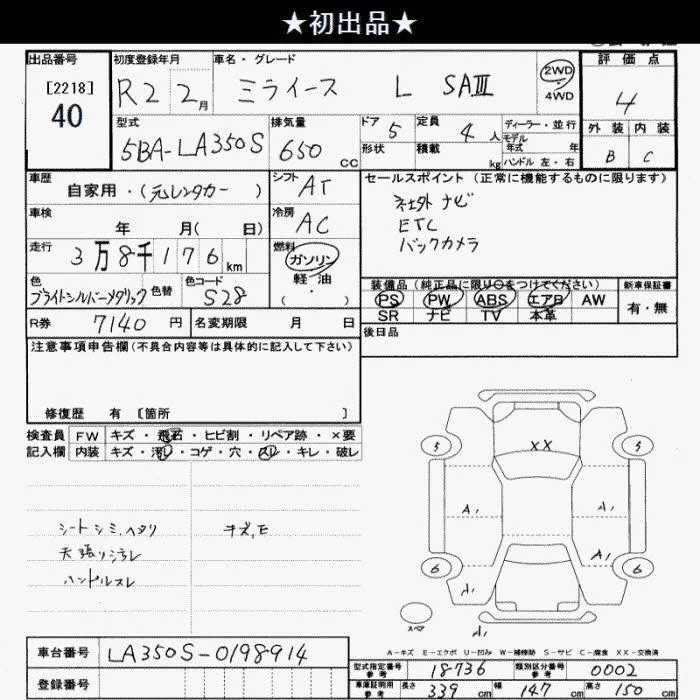 ★初出品★
出品番号
[2218]
40
初度登録年月
R2 2月
車名・グレード
ミライース L SAⅢ
2WD
4WD
評価点
4
外装 内装
B C
型式
5BA-LA350S
排気量
650 cc
ドア 5
形状
定員 4 人
積載 kg
ディーラー・並行
モデル
年式 年
ハンドル 左・右
車歴
自家用・(元レンタカー)
シフト AT
セールスポイント(正常に機能するものに限ります)
社外 ナビ
ETC
バックカメラ
車検
年 月( 日)
冷房 AC
走行
3万8千176km
燃料
ガソリン
軽油
( ・ )
色
ブライトシルバーメタリック
色替
色コード
S28
装備品(純正品に限り○をつけてください)
PS PW ABS エアB AW
SR ナビ TV 本革
新車保証書
有・無
R券 7140 円
名変期限 月 日
後日品
注意事項申告欄(不具合内容等は具体的に記入して下さい)
修復歴 有 [箇所 ]
検査員
記入欄
FW キズ・飛石・ヒビ割・リペア跡・×要
内装 キズ・汚れ・コゲ・穴・スレ・キレ・破レ
シートシミ、ヘタリ
天張り汚レ
ハンドルスレ
キズ、E
XX
5
5
A1
A1
A1
6
6
A1
A1
スペア
A-キズ E-エクボ U-凹み W-補修跡 S-サビ C-腐食 XX-交換済
車台番号
LA350S-0198914
登録番号
型式指定番号
参考
18736
類別区分番号
参考
0002
車庫証明用
参考
長さ 339 cm
幅 147 cm
高さ 150 cm